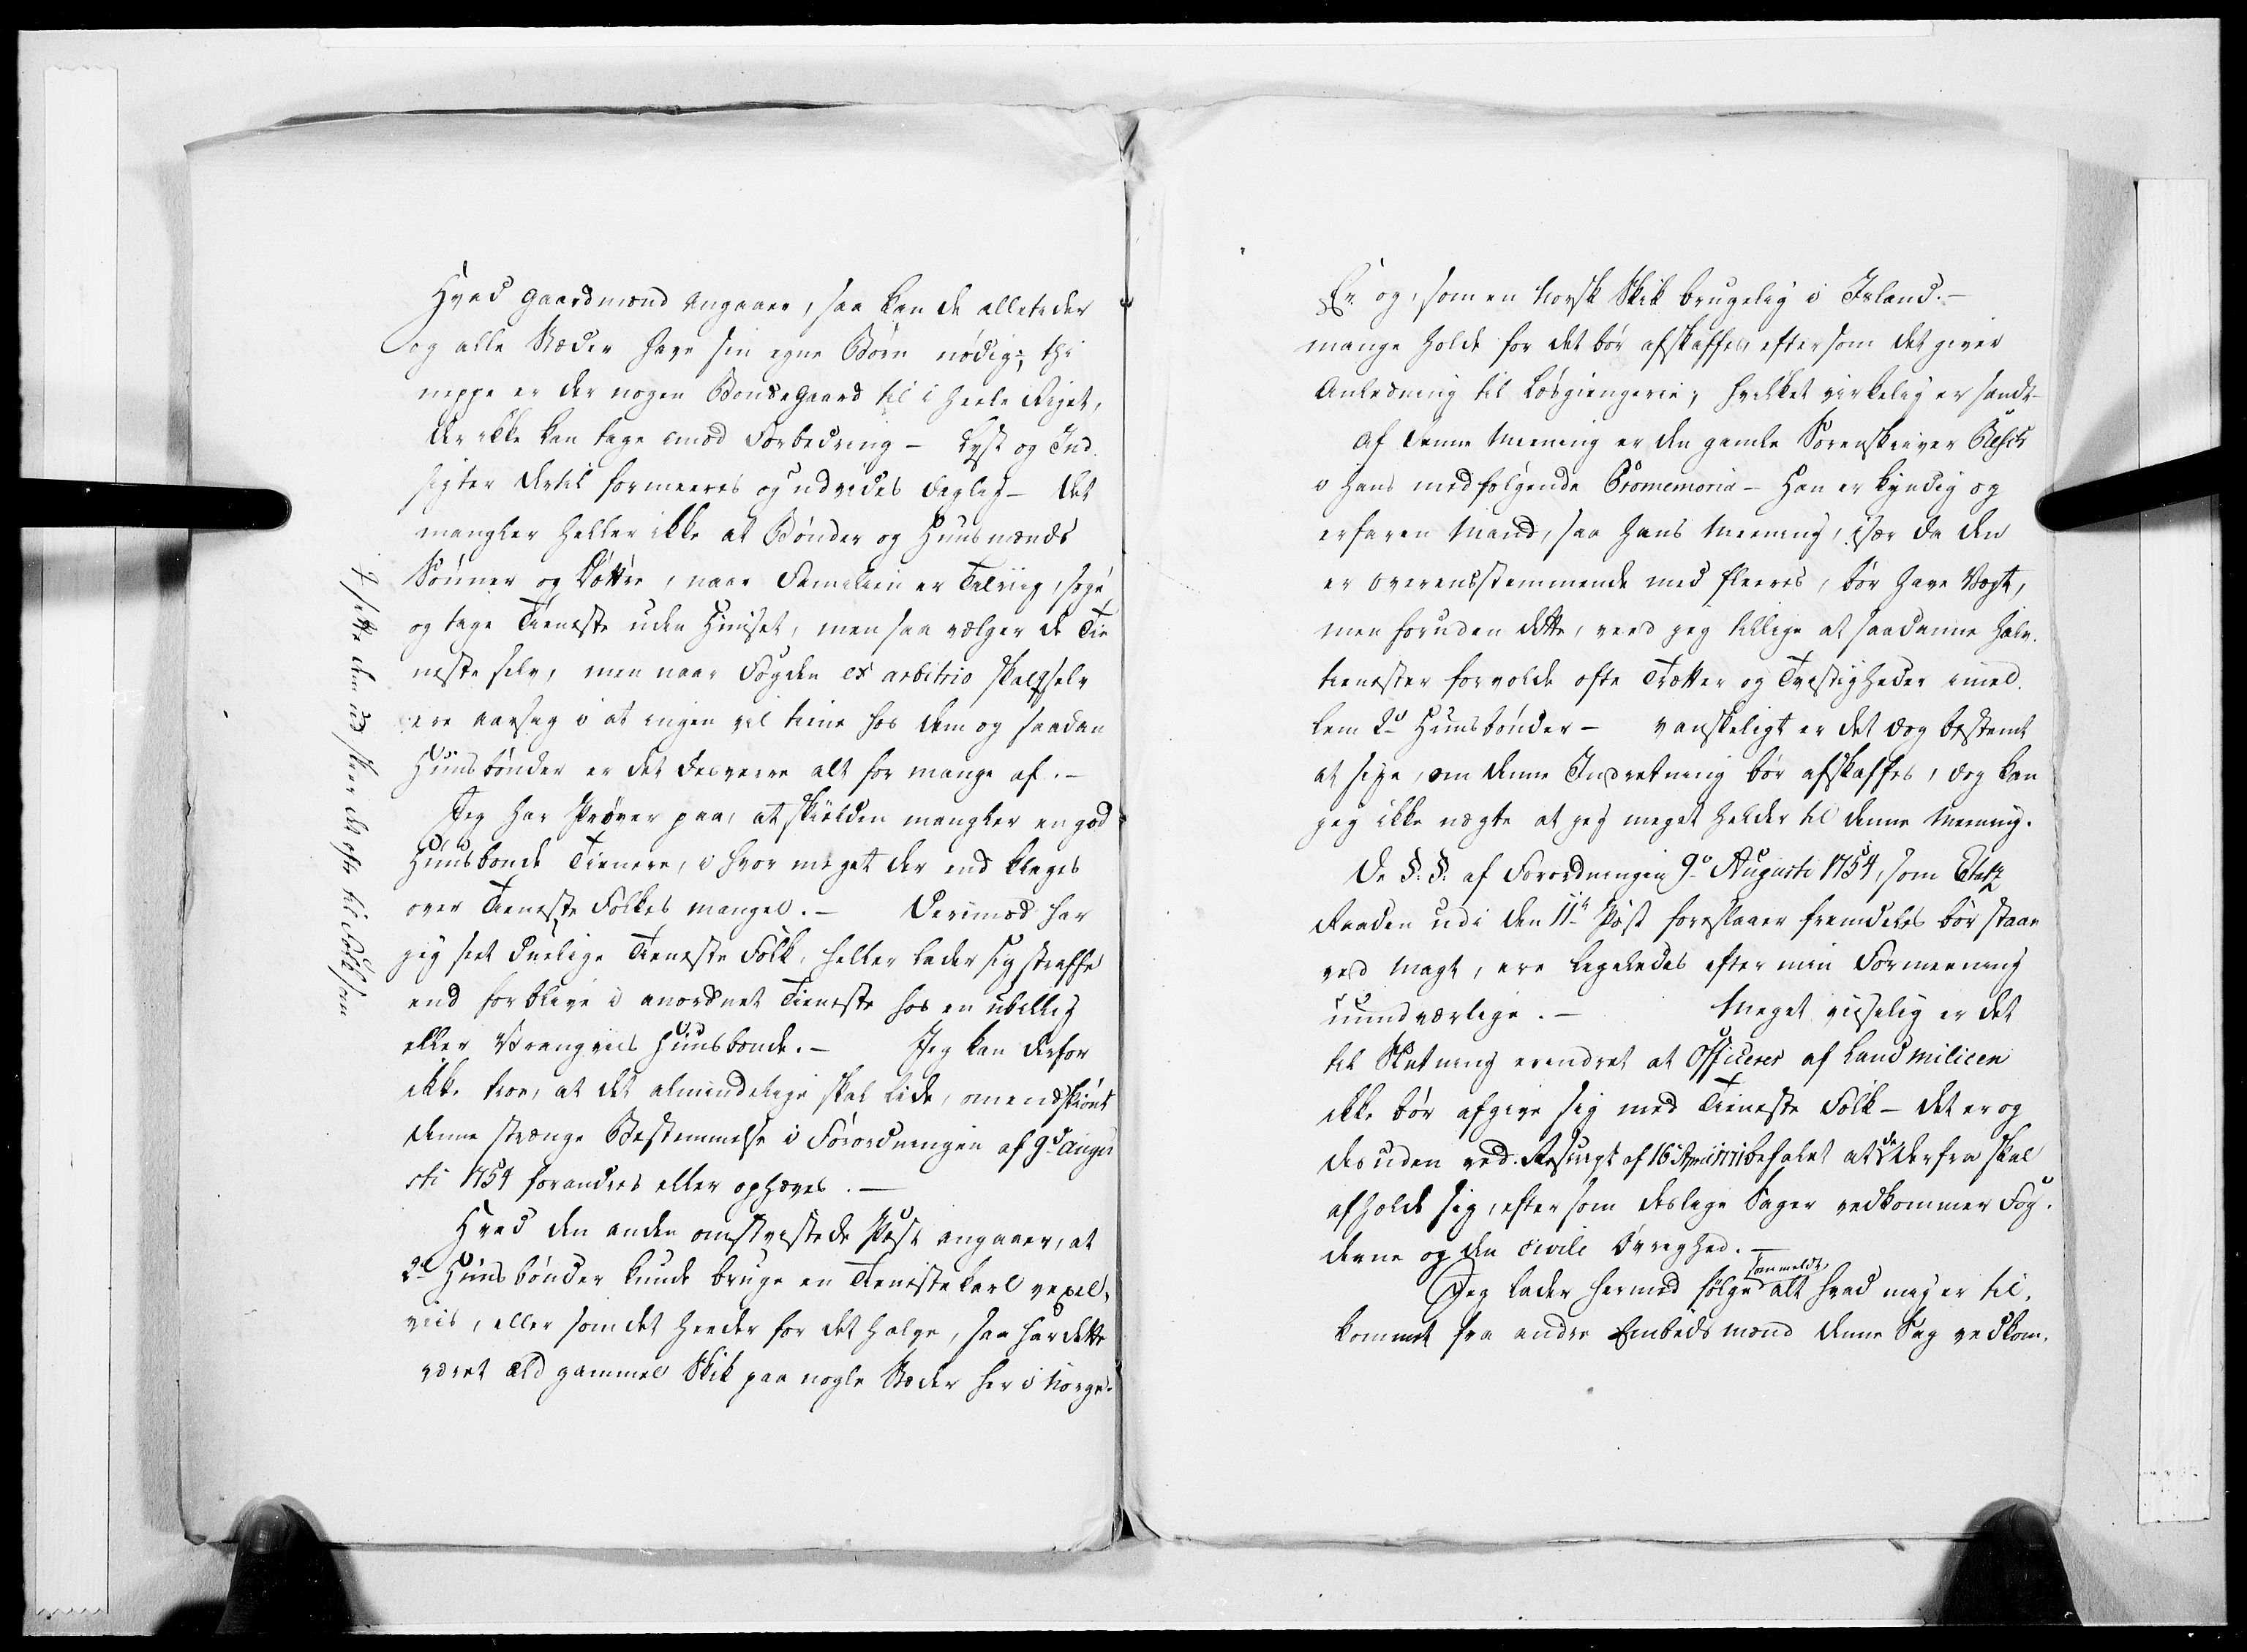 Hvad Gaardmænd angaaer, saa kan de alletider
og alle Stæder have sin egne Børn nødig; thi
neppe er der nogen Bondegaard til i heele Riget,
der ikke kan tage imod Forbedring – Lyst og Ind
sigter dertil formeeres og udvides daglig – det
mangler heller ikke at Bønder og Huusmænds
Sønner og Døttre, naar Familien er Talriig, søge
og tage Tieneste uden Huuset, men saa vælger de Tie
neste selv, men naar Fogden ex arbitrio skal ⌗ selv
ere aarsag i at ingen vil tiene hos dem og saadan
Huusbønder er det desverre alt for mange af. –
Jeg har Prøver paa, at skielden mangler en god
Huusbonde Tienere, i hvor meget der end klages
over Tieneste Folkes mangel. – Derimod har
jeg seet duelige Tieneste Folk, heller lader sig straffe
end forblive i anordnet Tieneste hos en ubillig
eller Vrangviis Huusbonde. – Jeg kan derfor
ikke troe, at det almindelige skal lide, omendskiønt
denne strænge Bestemmelse i Forordningen af 9d Augu
sti 1754 forandres eller ophæves. –
Hvad den anden omtvistede Post angaaer, at
2de Huusbønder kunde bruge en Tienestekarl vexel,
viis, eller som det heeder for det halve, saa har dette
været æld gammel Skik paa nogle Stæder her i Norge.
⌗ sætte dem ud skeer det ofte til Folk som
Er og, som en norsk Skik brugelig i Island. –
mange holde for det bør afskaffes, eftersom det giver
Anledning til Løsgiengerie; hvilket virkelig er sandt –
Af denne Meening er den gamle Sorenskriver
i hans medfølgende Promemoria – Han er kyndig og
erfaren Mand, saa hans Meening, især da den
er overensstemmende med fleeres, bør have Vægt,
men foruden dette, veed jeg tillige at saadanne halv.
tienester forvolde ofte Trætter og Tvistigheder imel.
lem 2de Huusbønder – vanskeligt er det dog bestemt
at sige, om denne Indretning bør afskaffes, dog kan
jeg ikke nægte at jeg meget helder til denne Mening.
De §. §. af Forordningen 9de Augusti 1754, som Etatz
Raaden udi den 11te Post foreslaaer fremdeles bør staae
ved Magt, ere ligeledes efter min Formeening
uundværlige. – Meget viiselig er det
til Slutning erindret at Officerer af Land Milicen
ikke bør afgive sig med Tieneste Folk – det er og
desuden ved Rescript af 16 April befalet at de derfra skal
afholde sig, eftersom deslige Sager vedkommer Fog.
derne og den civile Øvrighed. –
Jeg lader hermed følge sammeldte alt hvad mig er til.
kommet fra andre Embeds mænd denne Sag vedkom.